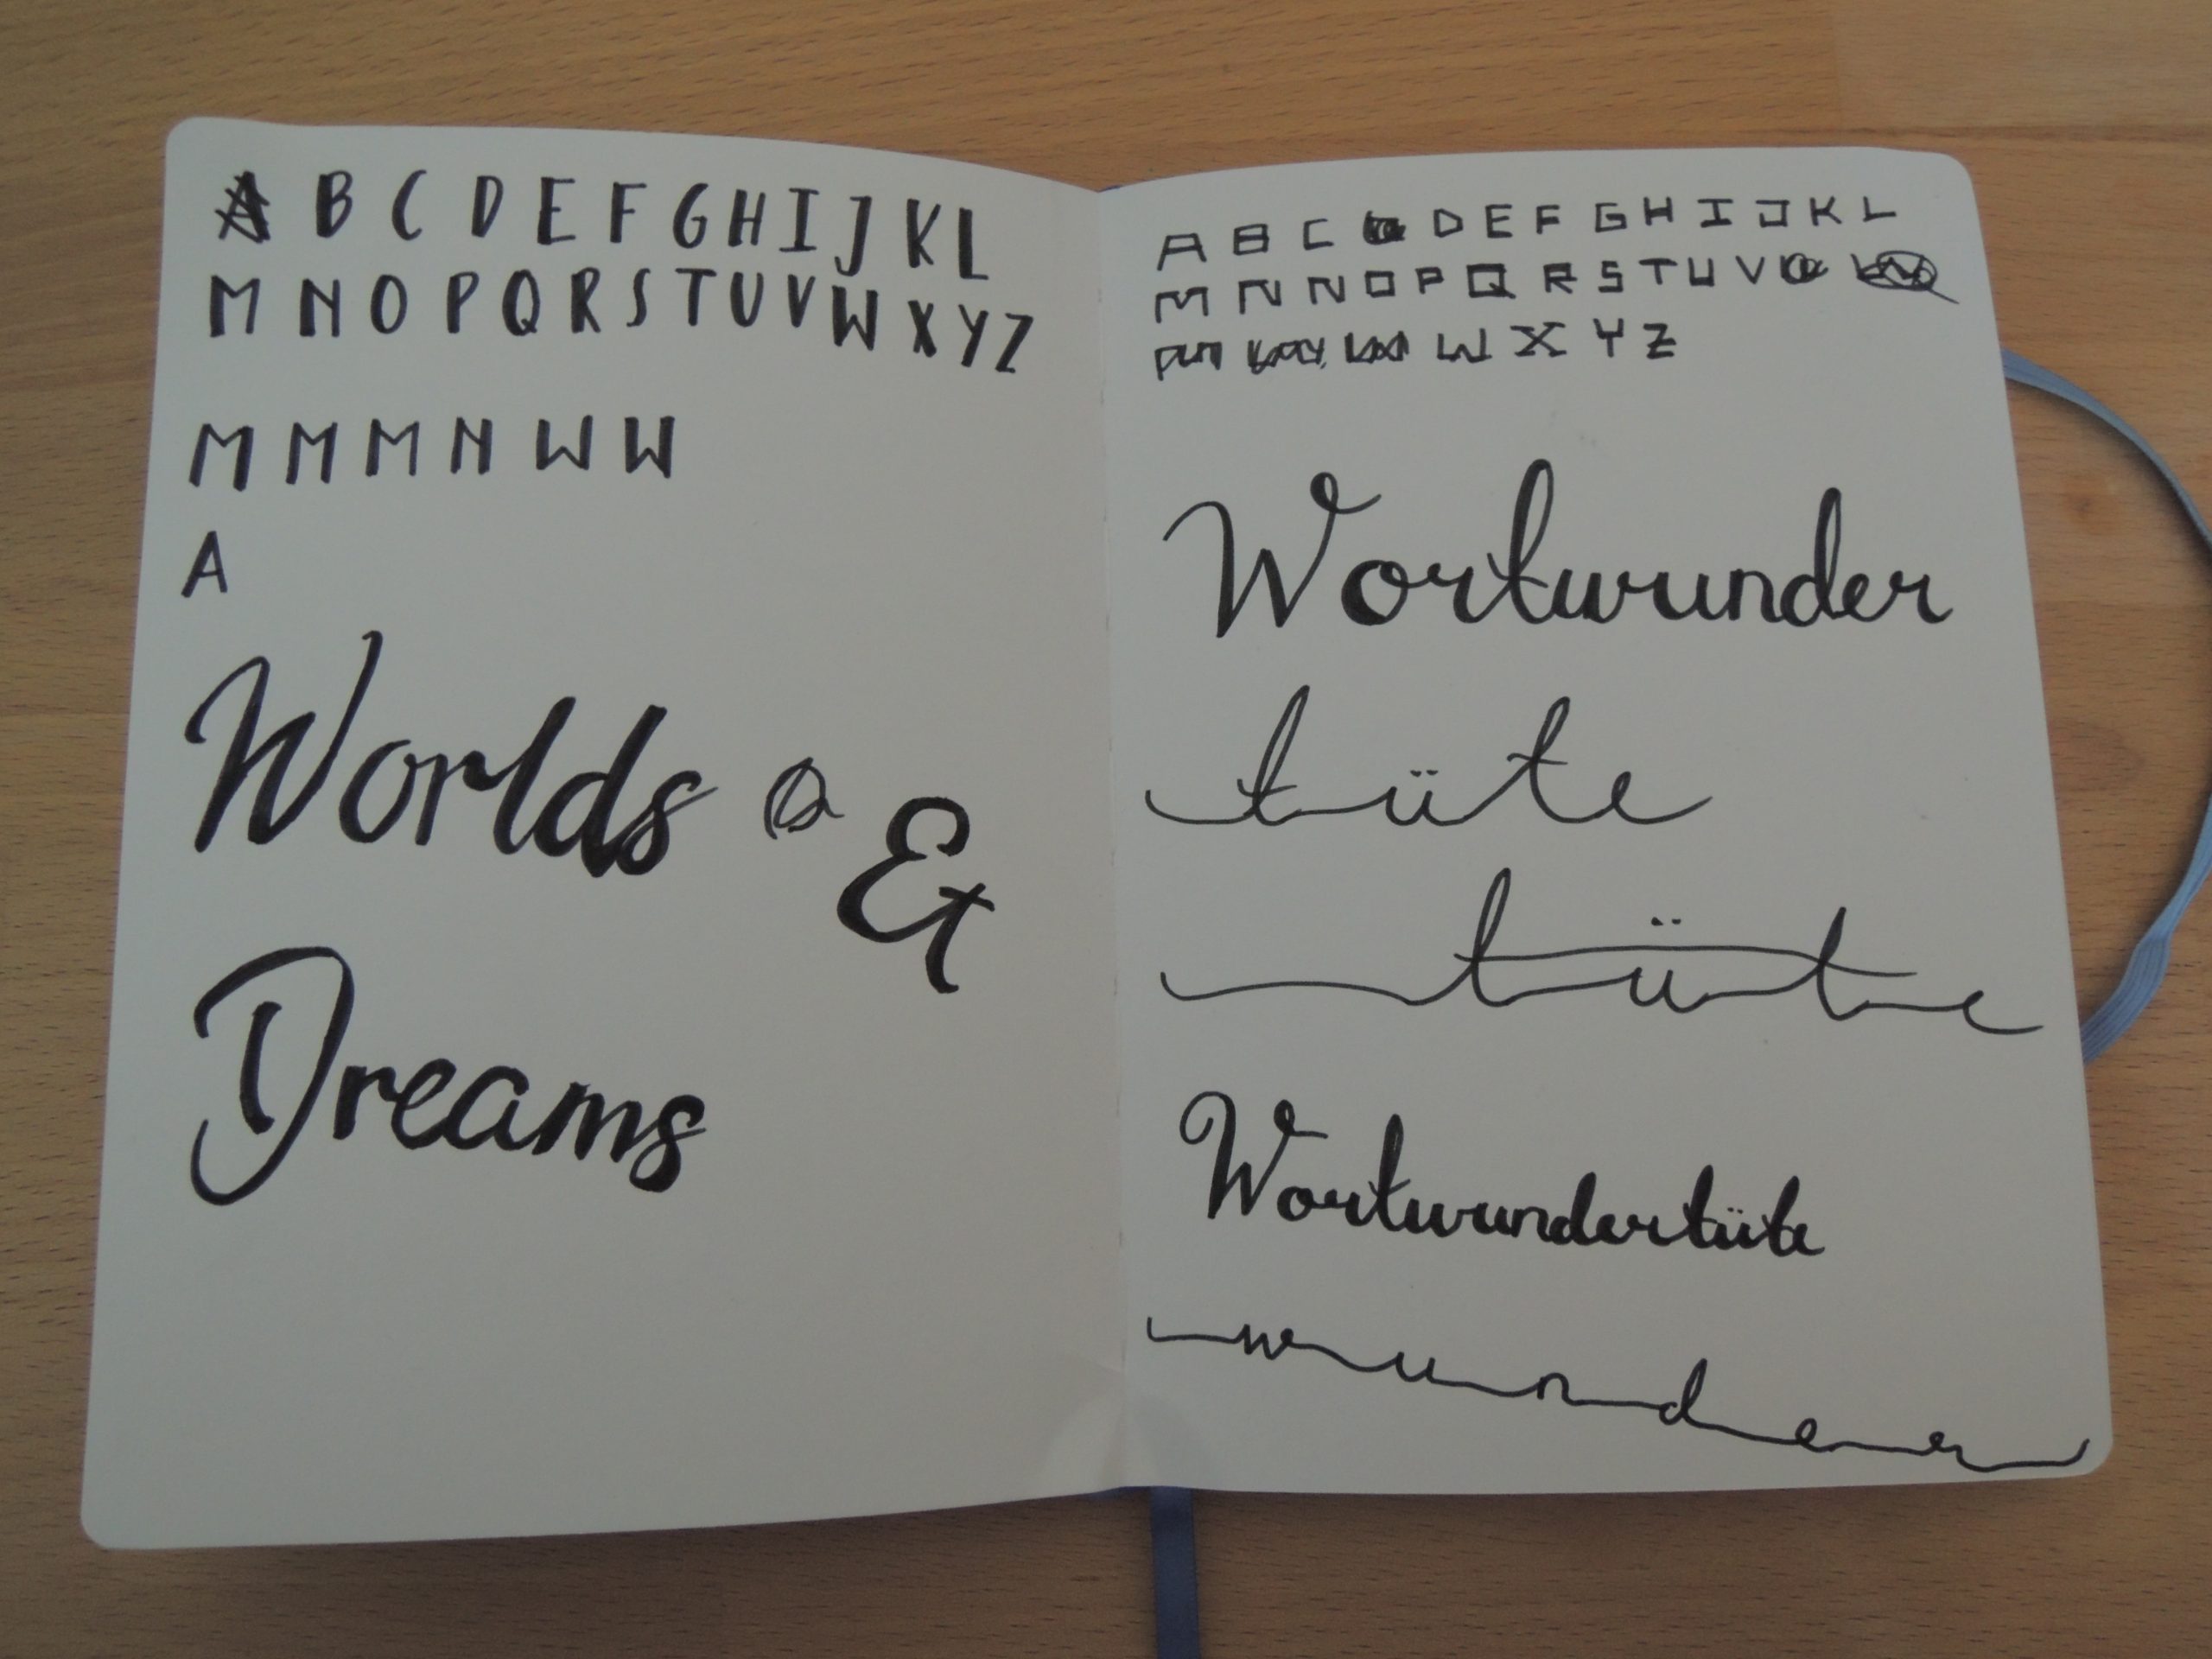 A B C D E F G H I J K L
M N O P Q R S T U V W X Y Z
M M M N W W
A
Worlds
&
Dreams
A B C D E F G H I J K L
M N N O P Q R S T U V
W X Y Z
Wortwunder
tüte
tüte
Wortwundertüte
wunder